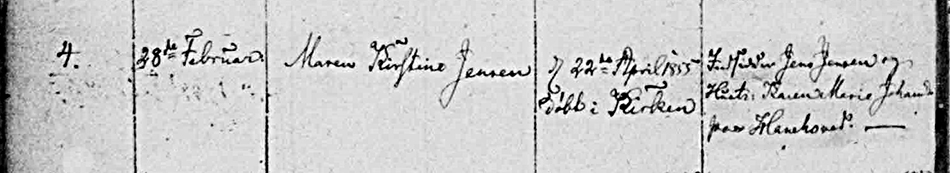 4.
28de Februar.
Maren Kirstine Jensen
22de April 1855
døbt i Kirken
Indsidder Jens Jensen og
Hustr: Karen Marie Johans
paa Hanehoved.